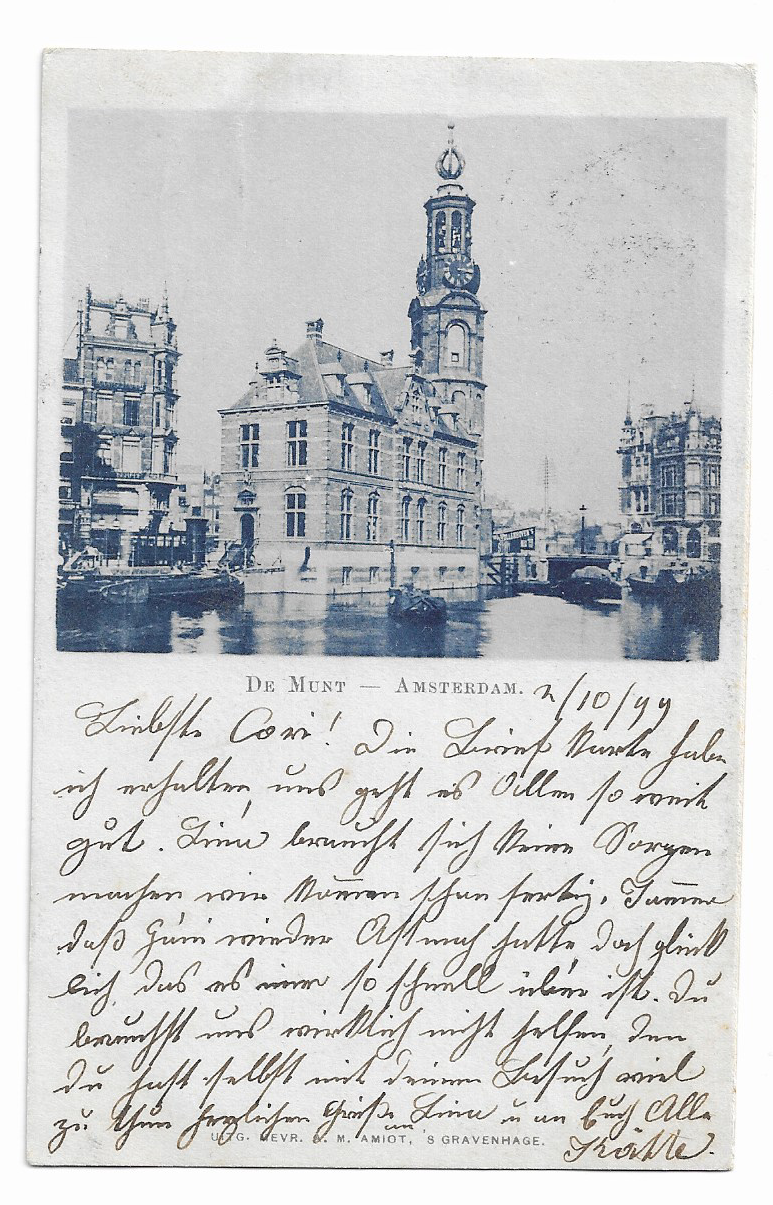 DE MUNT — AMSTERDAM. 2/10/99
Liebste Cori! Die Brief Karte habe
ich erhalten, uns geht es Allen so weit
gut. Lina braucht sich keine Sorgen
machen wir kom̅en schon fertig. Jam̅er
daß wieder Astmah hatte, doch glück
lich, das es im̅er so schnell über ist. Du
brauchst uns wirklich nicht helfen, den
du hast selbst mit deinem Besuch viel
zu thun herzlichen Grüße an Lina u an Euch Alle
UITG. MEVR. M. AMIOT, 'S GRAVENHAGE.
Käthe.